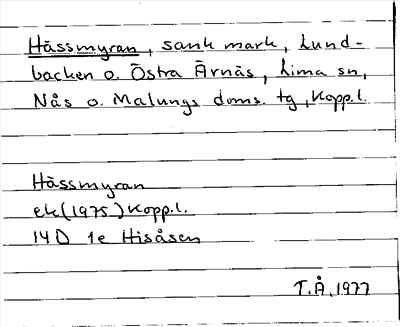 Hässmyran, sank mark, Lund-
backen o. Östra Ärnäs, Lima sn,
Nås o. Malungs doms. tg, Kopp.l.
Hässmyran
ek (1975) Kopp.l.
14D 1e Hisåsen
T.Å, 1977